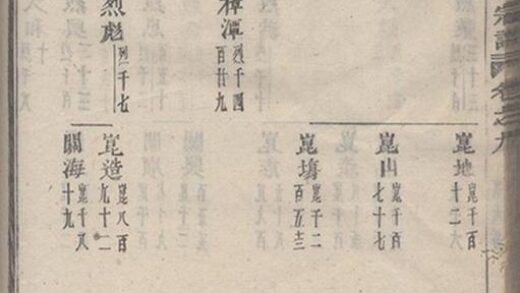 宗譜 卷之九
樟潭
烈千四
百廿九
烈彪
烈一千七
崑地
崑千百
十二六
崑山
崑千百
七十七
崑塲
崑千二
百五三
崑造
崑八百
九十一
關海
崑千八
十九